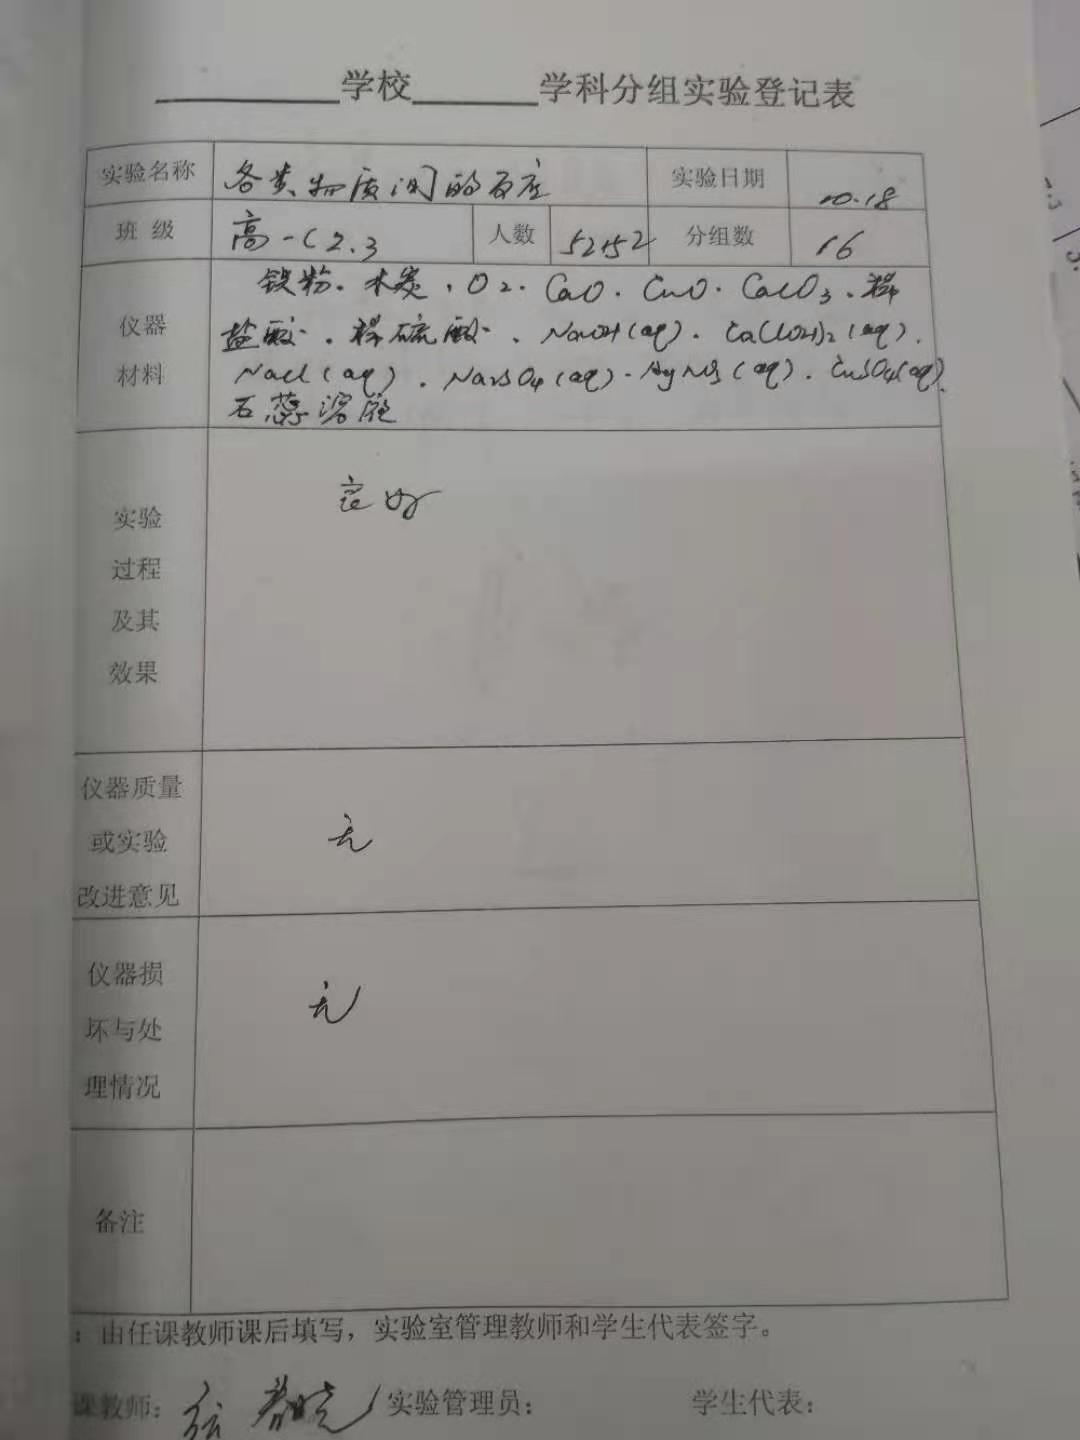 学校 学科分组实验登记表
实验名称 各类物质间的反应 实验日期 10.18
班 级 高一(2.3 人数 52+52 分组数 16
仪器材料
铁粉. 木炭. O2. CaO. CuO. CaCO3. 稀
盐酸. 稀硫酸. NaOH(aq). Ca(OH)2(aq).
NaCl(aq). Na2SO4(aq). AgNO3(aq). CuSO4(aq).
石蕊溶液
实验
过程
及其
效果
良好
仪器质量
或实验
改进意见
无
仪器损
坏与处
理情况
无
备注
:由任课教师课后填写，实验室管理教师和学生代表签字。
课教师: 春晓 实验管理员: 学生代表: